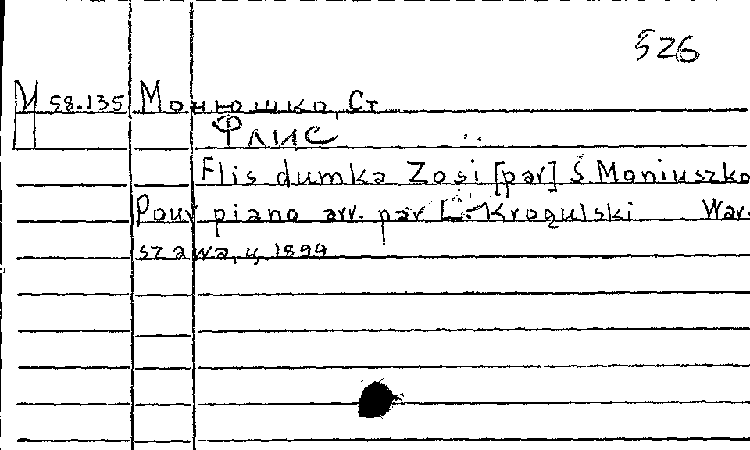 526
М 58.135 Монюшко, Ст
Флис
Flis dumka Zosi [par] S. Moniuszko
Pour piano arr. par L. Krogulski War-
szawa, ц. 1899